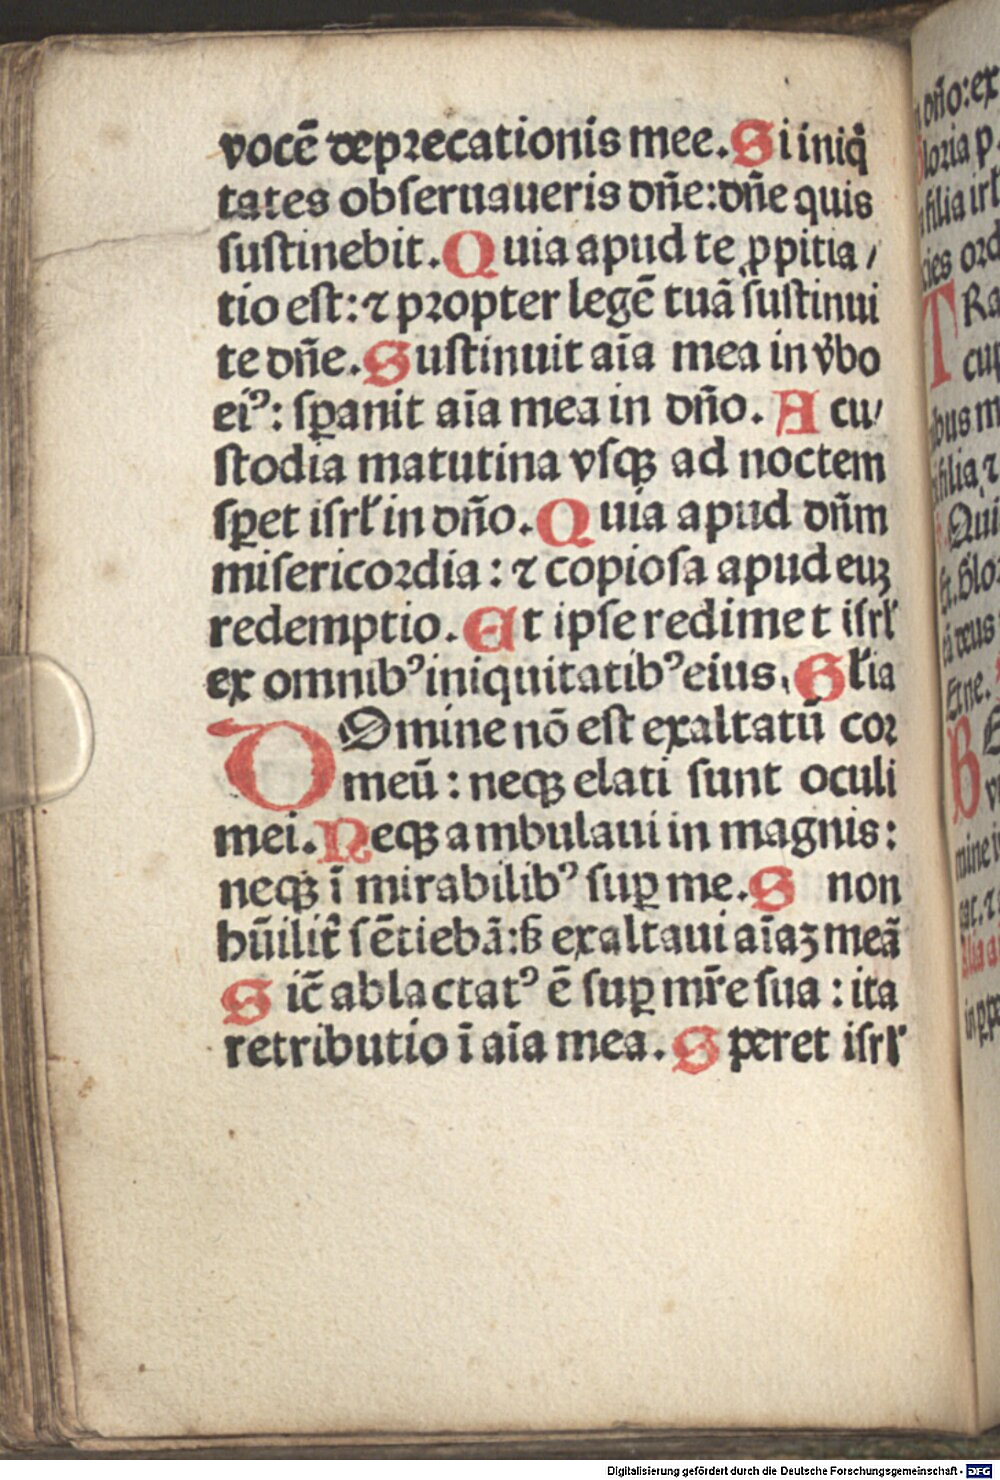 vocē deprecationis mee. Si iniq̇
tates obseruaueris dn̄e: dn̄e quis
sustinebit. Quia apud te ꝓpitia/
tio est: ⁊ propter legē tuā sustinui
te dn̄e. Sustinuit aīa mea in v̓bo
eiꝰ: sꝑauit aīa mea in dn̄o. A cu/
stodia matutina vsqꝫ ad noctem
sꝑet isrl̓ in dn̄o. Quia apud dn̄m
misericordia: ⁊ copiosa apud euꝫ
redemptio. Et ipse redimet isrl̓
ex omnibꝰ iniquitatibꝰ eius. Gl̓ia
DOmine nō est exaltatū cor
meū: neqꝫ elati sunt oculi
mei. Neqꝫ ambulaui in magnis:
neqꝫ ī mirabilibꝰ suꝑ me. S non
hūilit̓ sētiebā: sꝫ exaltaui aīaꝫ meā
Sic̄ ablactatꝰ ē suꝑ mr̄e sua: ita
retributio ī aīa mea. Speret isrl̓
dn̄o: ex
loria p
filia irl̓
cies ord
Ra
cup
ibus m
filia ⁊
Qui
Et. Glo
deus
Et ne.
B
mine
in ꝑpe
Digitalisierung gefördert durch die Deutsche Forschungsgemeinschaft - DFG